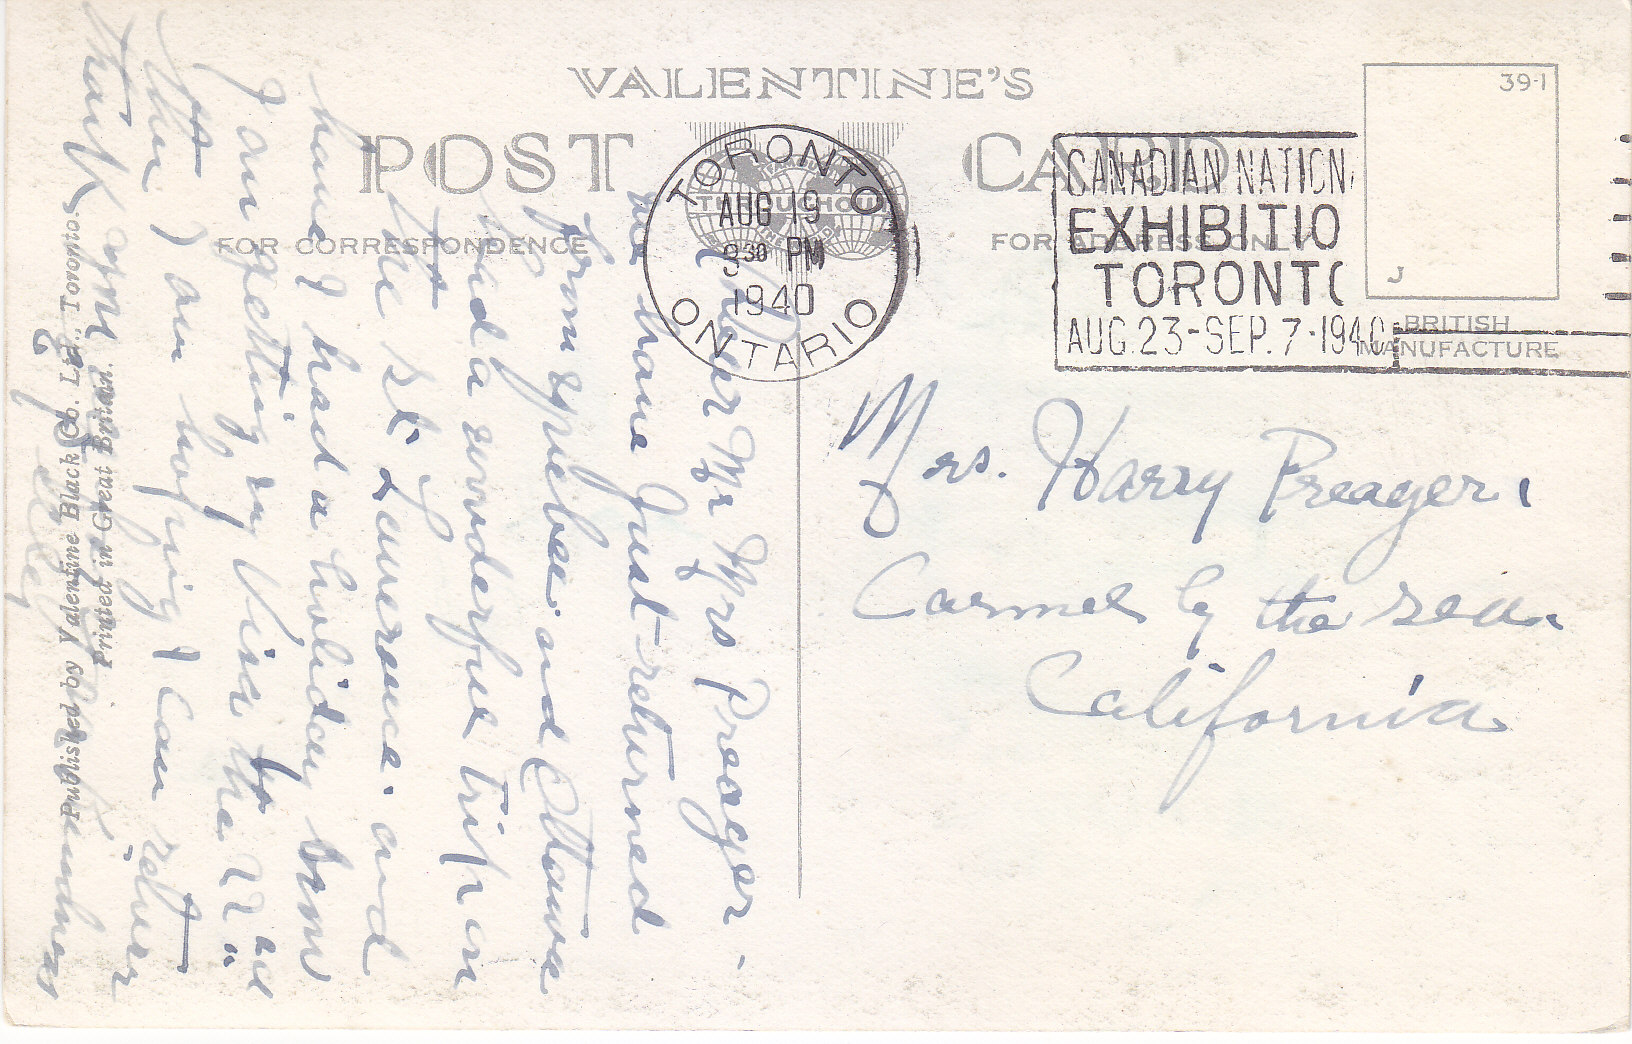 VALENTINE'S
POST CARD
FOR CORRESPONDENCE
FOR ADDRESS ONLY
39-1
J
BRITISH
MANUFACTURE
TORONTO
AUG 19
3 30 PM
1940
ONTARIO
CANADIAN NATION
EXHIBITIO
TORONTO
AUG. 23-SEP. 7-1940
THROUGHOUT
Mrs. Harry Preager,
Carmel by the sea.
California
Dear Mr & Mrs Preager -
We have just returned
from Quebec and Ottawa
had a wonderful trip on
the St. Lawrence. and
have I had a holiday
I am getting my Visa the 22nd
I am hoping I can return
Thank you for your kindness
Published by Valentine Black Co. Ltd., Toronto.
Printed in Great Britain.